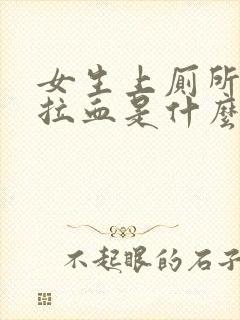 女生上厕所
拉血是什麼
不起眼的石子